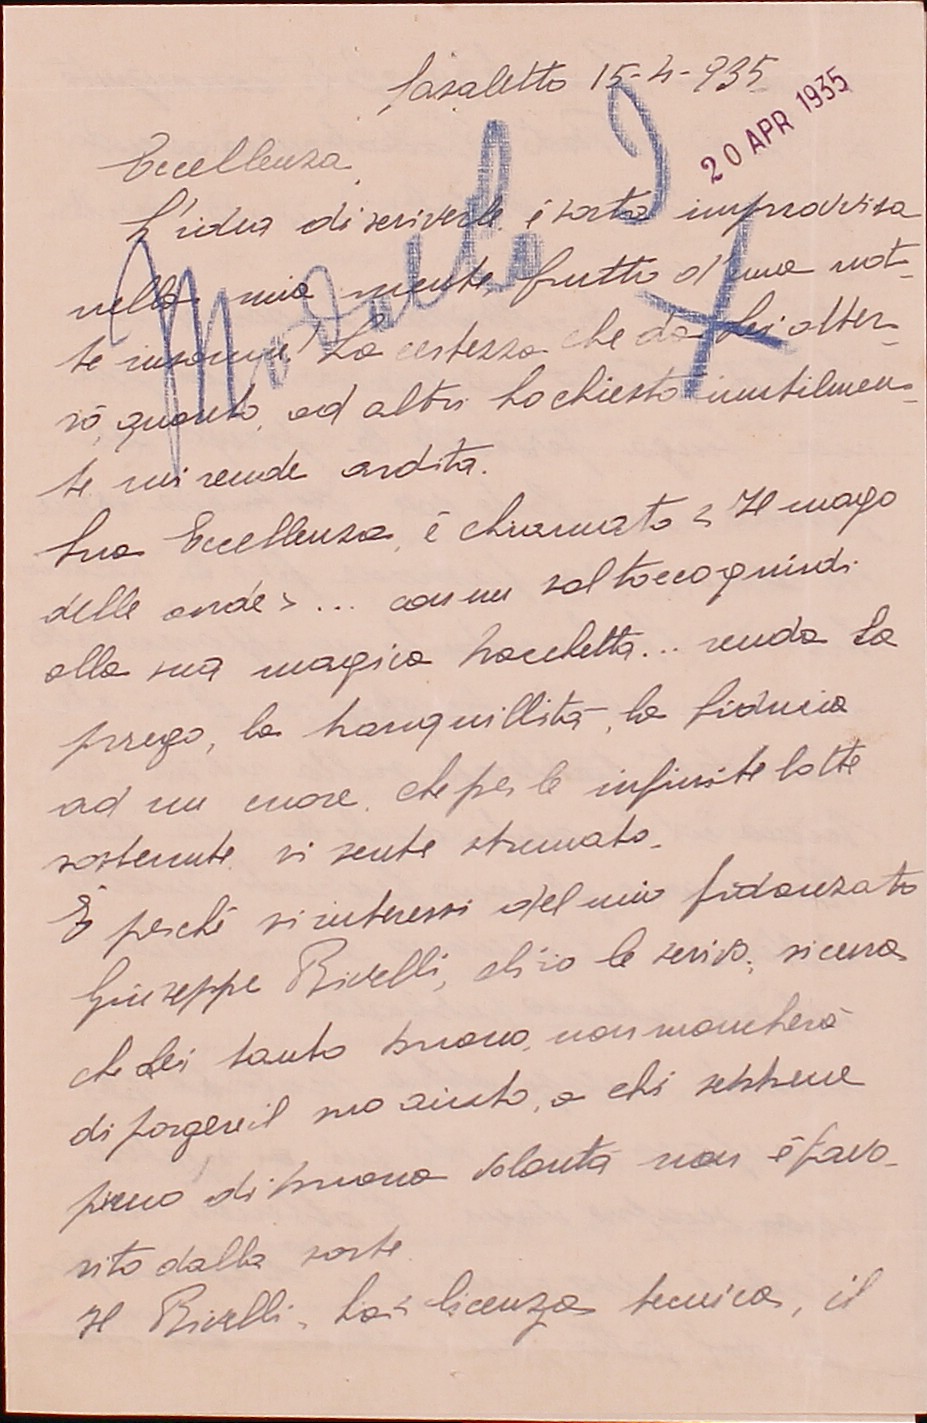 Casaletto 15-4-935
20 APR 1935
Eccellenza,
L'idea di scriverle è sorta improvvisa
nella mia mente, frutto d'una not-
te insonne! La certezza che da Lei otter-
rò, quanto, ad altri ho chiesto inutilmen-
te mi rende ardita.
Sua Eccellenza, è chiamato < Il mago
delle onde > ... con un sol tocco quindi
alla sua magica bacchetta... renda La
prego, la tranquillità, la fiducia
ad un cuore, che per le infinite lotte
sostenute si sente stremato.
È perché si interessi del mio fidanzato
Giuseppe Rivelli, ch'io le scrivo, sicura
che Lei tanto buono, non mancherà
di porgere il suo aiuto, a chi sebbene
pieno di buona volontà non è favo-
rito dalla sorte.
Il Rivelli, ha licenza tecnica, il